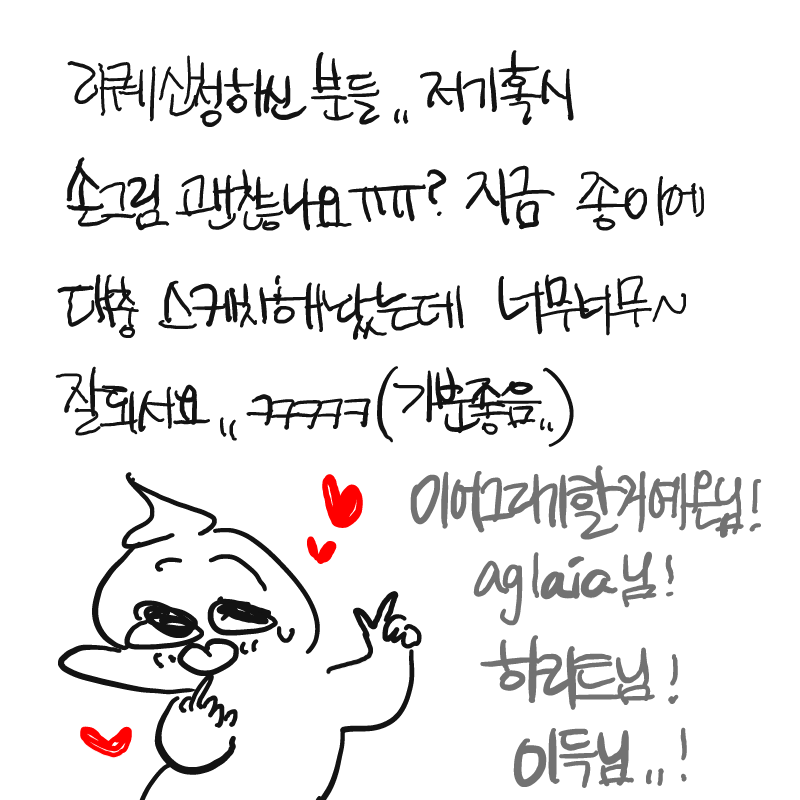 리퀘신청하신 분들,, 저기혹시
손그림 괜찮나요ㅠㅠ? 지금 종이에
대충 스케치해놨는데 너무너무~
잘돼서요,, ㅋㅋㅋㅋㅋ(기분좋음,,)
이어그리기할거예온님!
aglaia님!
하리트님!
이득님,,!